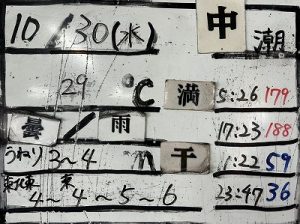 10/30(水) 中潮
29 ℃ 満 5:26 179
曇/雨 17:23 188
うねり 3~4 m 干 1:22 59
東北東 4~ 東 4~5~6 23:47 36